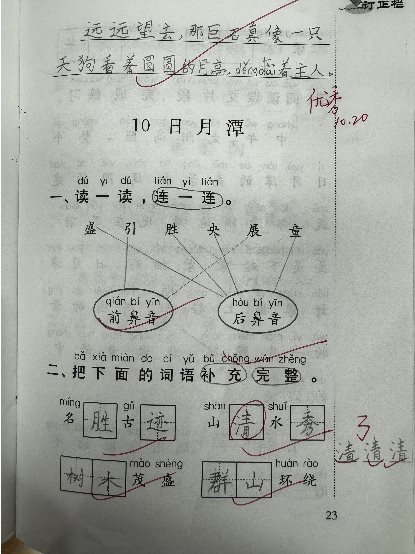 订正栏
远远望去，那巨石真像一只
天狗看着圆圆的月亮，děngdài着主人。
优秀
10.20
10 日月潭
dú yi dú lián yi lián
一、读一读，连一连。
盛 引 胜 央 展 童
qián bí yīn hòu bí yīn
前鼻音 后鼻音
bǎ xià miàn de cí yǔ bǔ chōng wán zhěng
二、把下面的词语补充完整。
míng gǔ shān shuǐ
名胜古迹 山清水秀
清清清
mào shèng huán rào
树木茂盛 群山环绕
23